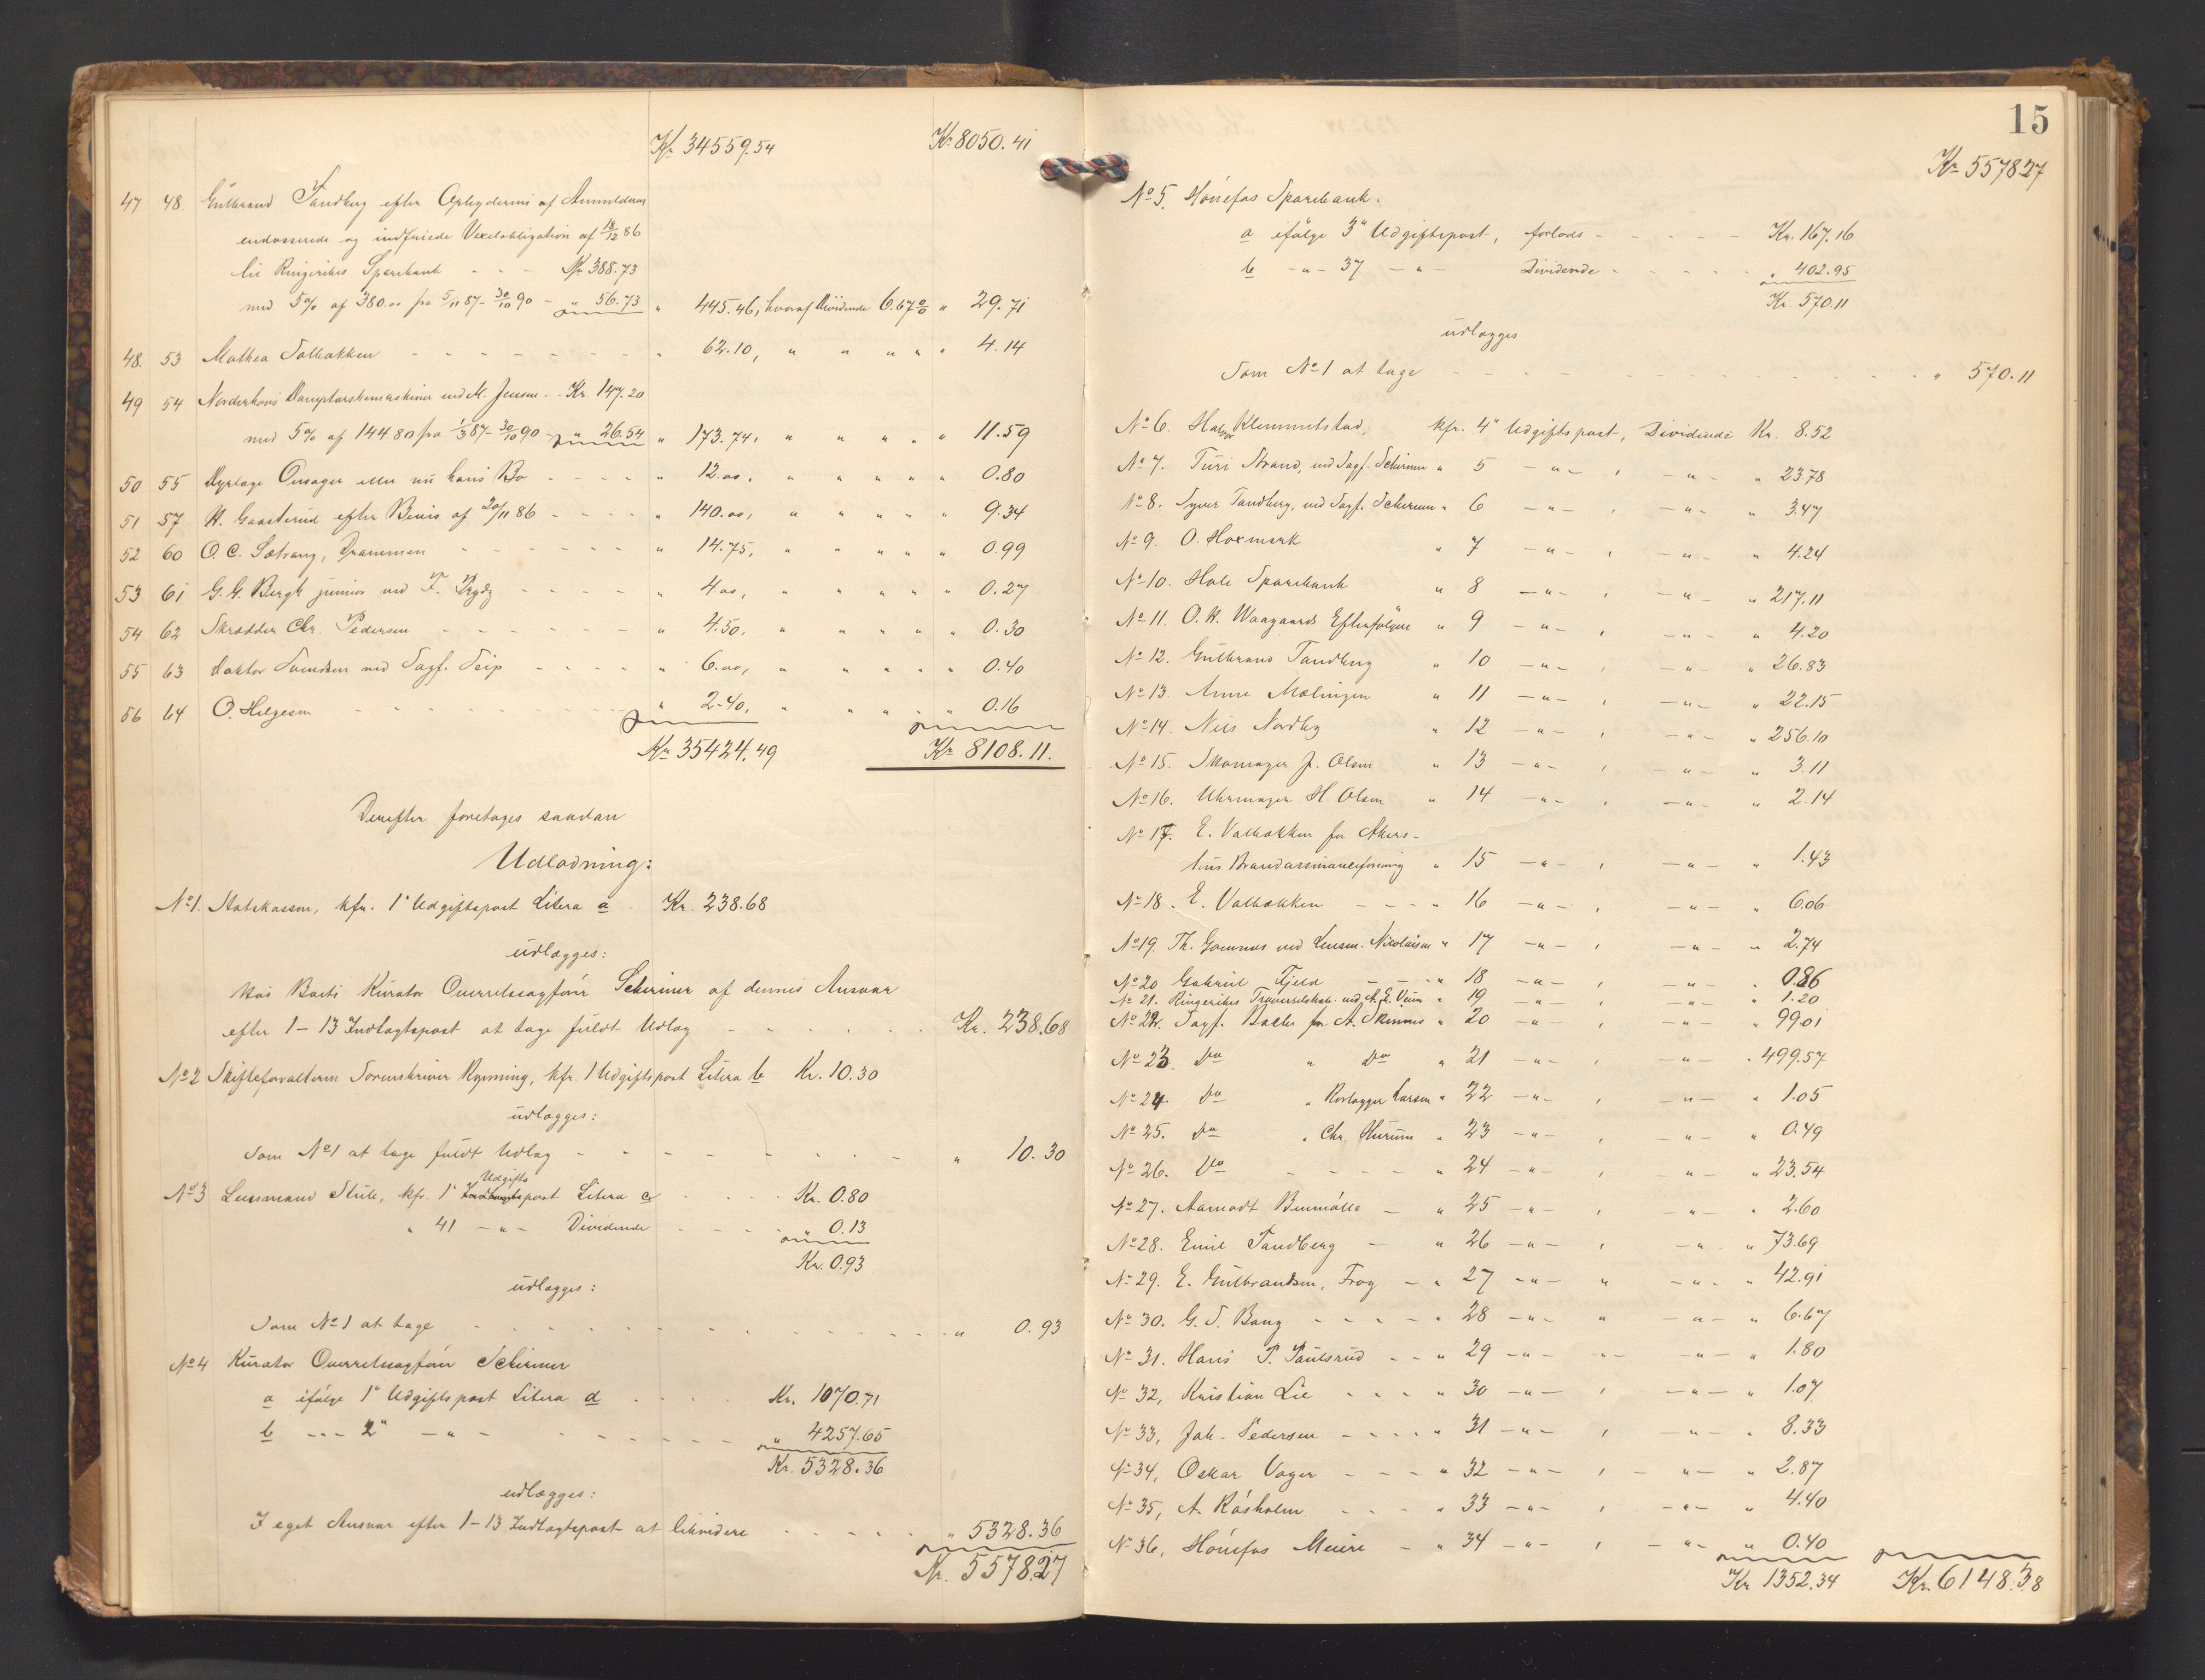 Kr. 34559.54 Kr. 8050.41
47 48. Gulbrand Tandberg efter Opbydernes af Anmeldernes
endosserede og indfriede Vexelobligation af 18/12 86
til Ringerikes Sparebank - - - Kr. 388.73
med 5% af 380.00 fra 5/11 87 - 30/10 90 - " 56.73 " 445.46, hvoraf Dividende 6.67% " 29.71
48. 53 Mathea Solbakken - - - - - - - - " 62.10, " " " " " 4.14
49 54 Norderhovs Damptærskemaskine ved M. Jensen. - Kr. 147.20
med 5% af 144.80 fra 1/3 87 - 30/10 90 - " 26.54 " 173.74, " " " " " 11.59
50 55 Dyrlæge Onsager eller nu hans Bo - - - - " 12.00, " " " " " 0.80
51 57 H. Gaasterud efter Bevis af 20/11 86 - - - - " 140.00, " " " " " 9.34
52 60 O. C. Sætrang, Drammen - - - - - - " 14.75, " " " " " 0.99
53 61 G. G. Bergh junior ved F. Prydz - - - - " 4.00, " " " " " 0.27
54 62 Skrædder Chr. Pedersen - - - - - - " 4.50, " " " " " 0.30
55 63 Doktor Svendsen ved Sagf. Seip - - - - " 6.00, " " " " " 0.40
56 64 O. Helgesen - - - - - - - - " 2.40, " " " " " 0.16
Kr. 35424.49 Kr. 8108.11.
Derefter foretages saadan
Udlodning:
No 1. Statskassen, kfr. 1" Udgiftspost Litera a - Kr. 238.68
udlægges:
Hos Boets Kurator Overretssagfører Schirmer af dennes Ansvar
efter 1 - 13 Indtægtspost at tage fuldt Udlæg - - - - - - Kr. 238.68
No 2 Skifteforvalteren Sorenskriver Rynning, kfr. 1 Udgiftspost Litera b Kr. 10.30
udlægges:
Som No 1 at tage fuldt Udlæg - - - - - - - - " 10.30
Udgifts
No 3 Lensmand Stub, kfr. 1" Indtægtspost Litera c - - - - Kr. 0.80
" 41 - " - Dividende - - - - " 0.13
Kr. 0.93
udlægges:
Som No 1 at tage - - - - - - - - - - - - " 0.93
No 4 Kurator Overretssagfører Schirmer
a ifølge 1" Udgiftspost Litera d - - - - Kr. 1070.71
b - - - 2" - " - - - - - - - " 4257.65
Kr. 5328.36
udlægges:
I eget Ansvar efter 1 - 13 Indtægtspost at likvidere - - - - - " 5328.36
Kr. 5578.27
15
Kr. 5578.27
No 5. Hønefos Sparebank.
a ifølge 3" Udgiftspost, forlods - - - - - - Kr. 167.16
b - " - 37 - " - Dividende - - - - - " 402.95
Kr. 570.11
udlægges
Som No 1 at tage - - - - - - - - - - - - " 570.11
No 6. Halvor Klemmetstad, kfr. 4" Udgiftspost, Dividende Kr. 8.52
No 7. Turi Strand, ved Sagf. Schirmer " 5 - " - , - " - " 23.78
No 8. Syver Tandberg, ved Sagf. Schirmer " 6 - " - , - " - " 3.47
No 9. O. Hoxmark " 7 - " - , - " - " 4.24
No 10. Hole Sparebank " 8 - " - , - " - " 217.11
No 11. O. H. Waagaards Efterfølgere " 9 - " - , - " - " 4.20
No 12. Gulbrand Tandberg " 10 - " - , - " - " 26.83
No 13. Anne Mælingen " 11 - " - , - " - " 22.15
No 14. Nils Nordby " 12 - " - , - " - " 256.10
No 15. Skomager J. Olsen " 13 - " - , - " - " 3.11
No 16. Uhrmager H. Olsen " 14 - " - , - " - " 2.14
No 17. E. Valbækken for Akers-
hus Brandassuranceforening " 15 - " - , - " - " 1.43
No 18. E. Valbækken - - - " 16 - " - , - " - " 6.06
No 19. Th. Gomnæs ved Lensm. Nicolaisen " 17 - " - , - " - " 2.74
No 20 Gabriel Fjeld - - - " 18 - " - , - " - " 0.86
No 21. Ringerikes Træuerretskab. ved A. E. Veim " 19 - " - , - " - " 1.20
No 22. Sagf. Bache for A. Skinnes " 20 - " - , - " - " 99.01
No 23. Do " Do " 21 - " - , - " - " 499.57
No 24. Do " Rørlægger Larsen " 22 - " - , - " - " 1.05
No 25. Do " Chr. Hurum " 23 - " - , - " - " 0.49
No 26. Do - - - - " 24 - " - , - " - " 23.54
No 27. Aamodt Benmølle - " 25 - " - , - " - " 2.60
No 28. Emil Tandberg - " 26 - " - , - " - " 73.69
No 29. E. Gulbrandsen, Frog - " 27 - " - " - " - " 42.91
No 30. G. S. Bang - - - - " 28 - " - " - " - " 6.67
No 31. Hans P. Paulsrud - - " 29 - " - " - " - " 1.80
No 32, Kristian Lie - - - " 30 - " - , - " - " 1.07
No 33, Joh. Pedersen - - - - " 31 - " - , - " - " 8.33
No 34, Oskar Vager - - - " 32 - " - , - " - " 2.87
No 35, A. Råsholm - - - " 33 - " - , - " - " 4.40
No 36, Hønefos Meieri - " 34 - " - , - " - " 0.40
Kr. 1352.34 Kr. 6148.38